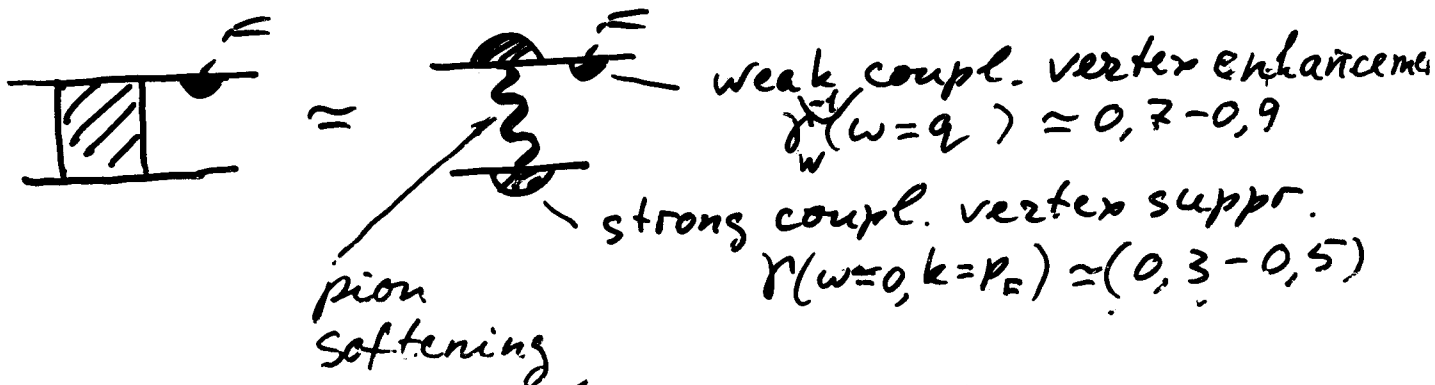 ≃
weak coupl. vertex enhanceme
γ_w^{-1}(ω=q) ≃ 0,7-0,9
strong coupl. vertex suppr.
γ(ω≃0, k=p_F) ≃(0,3-0,5)
pion
softening